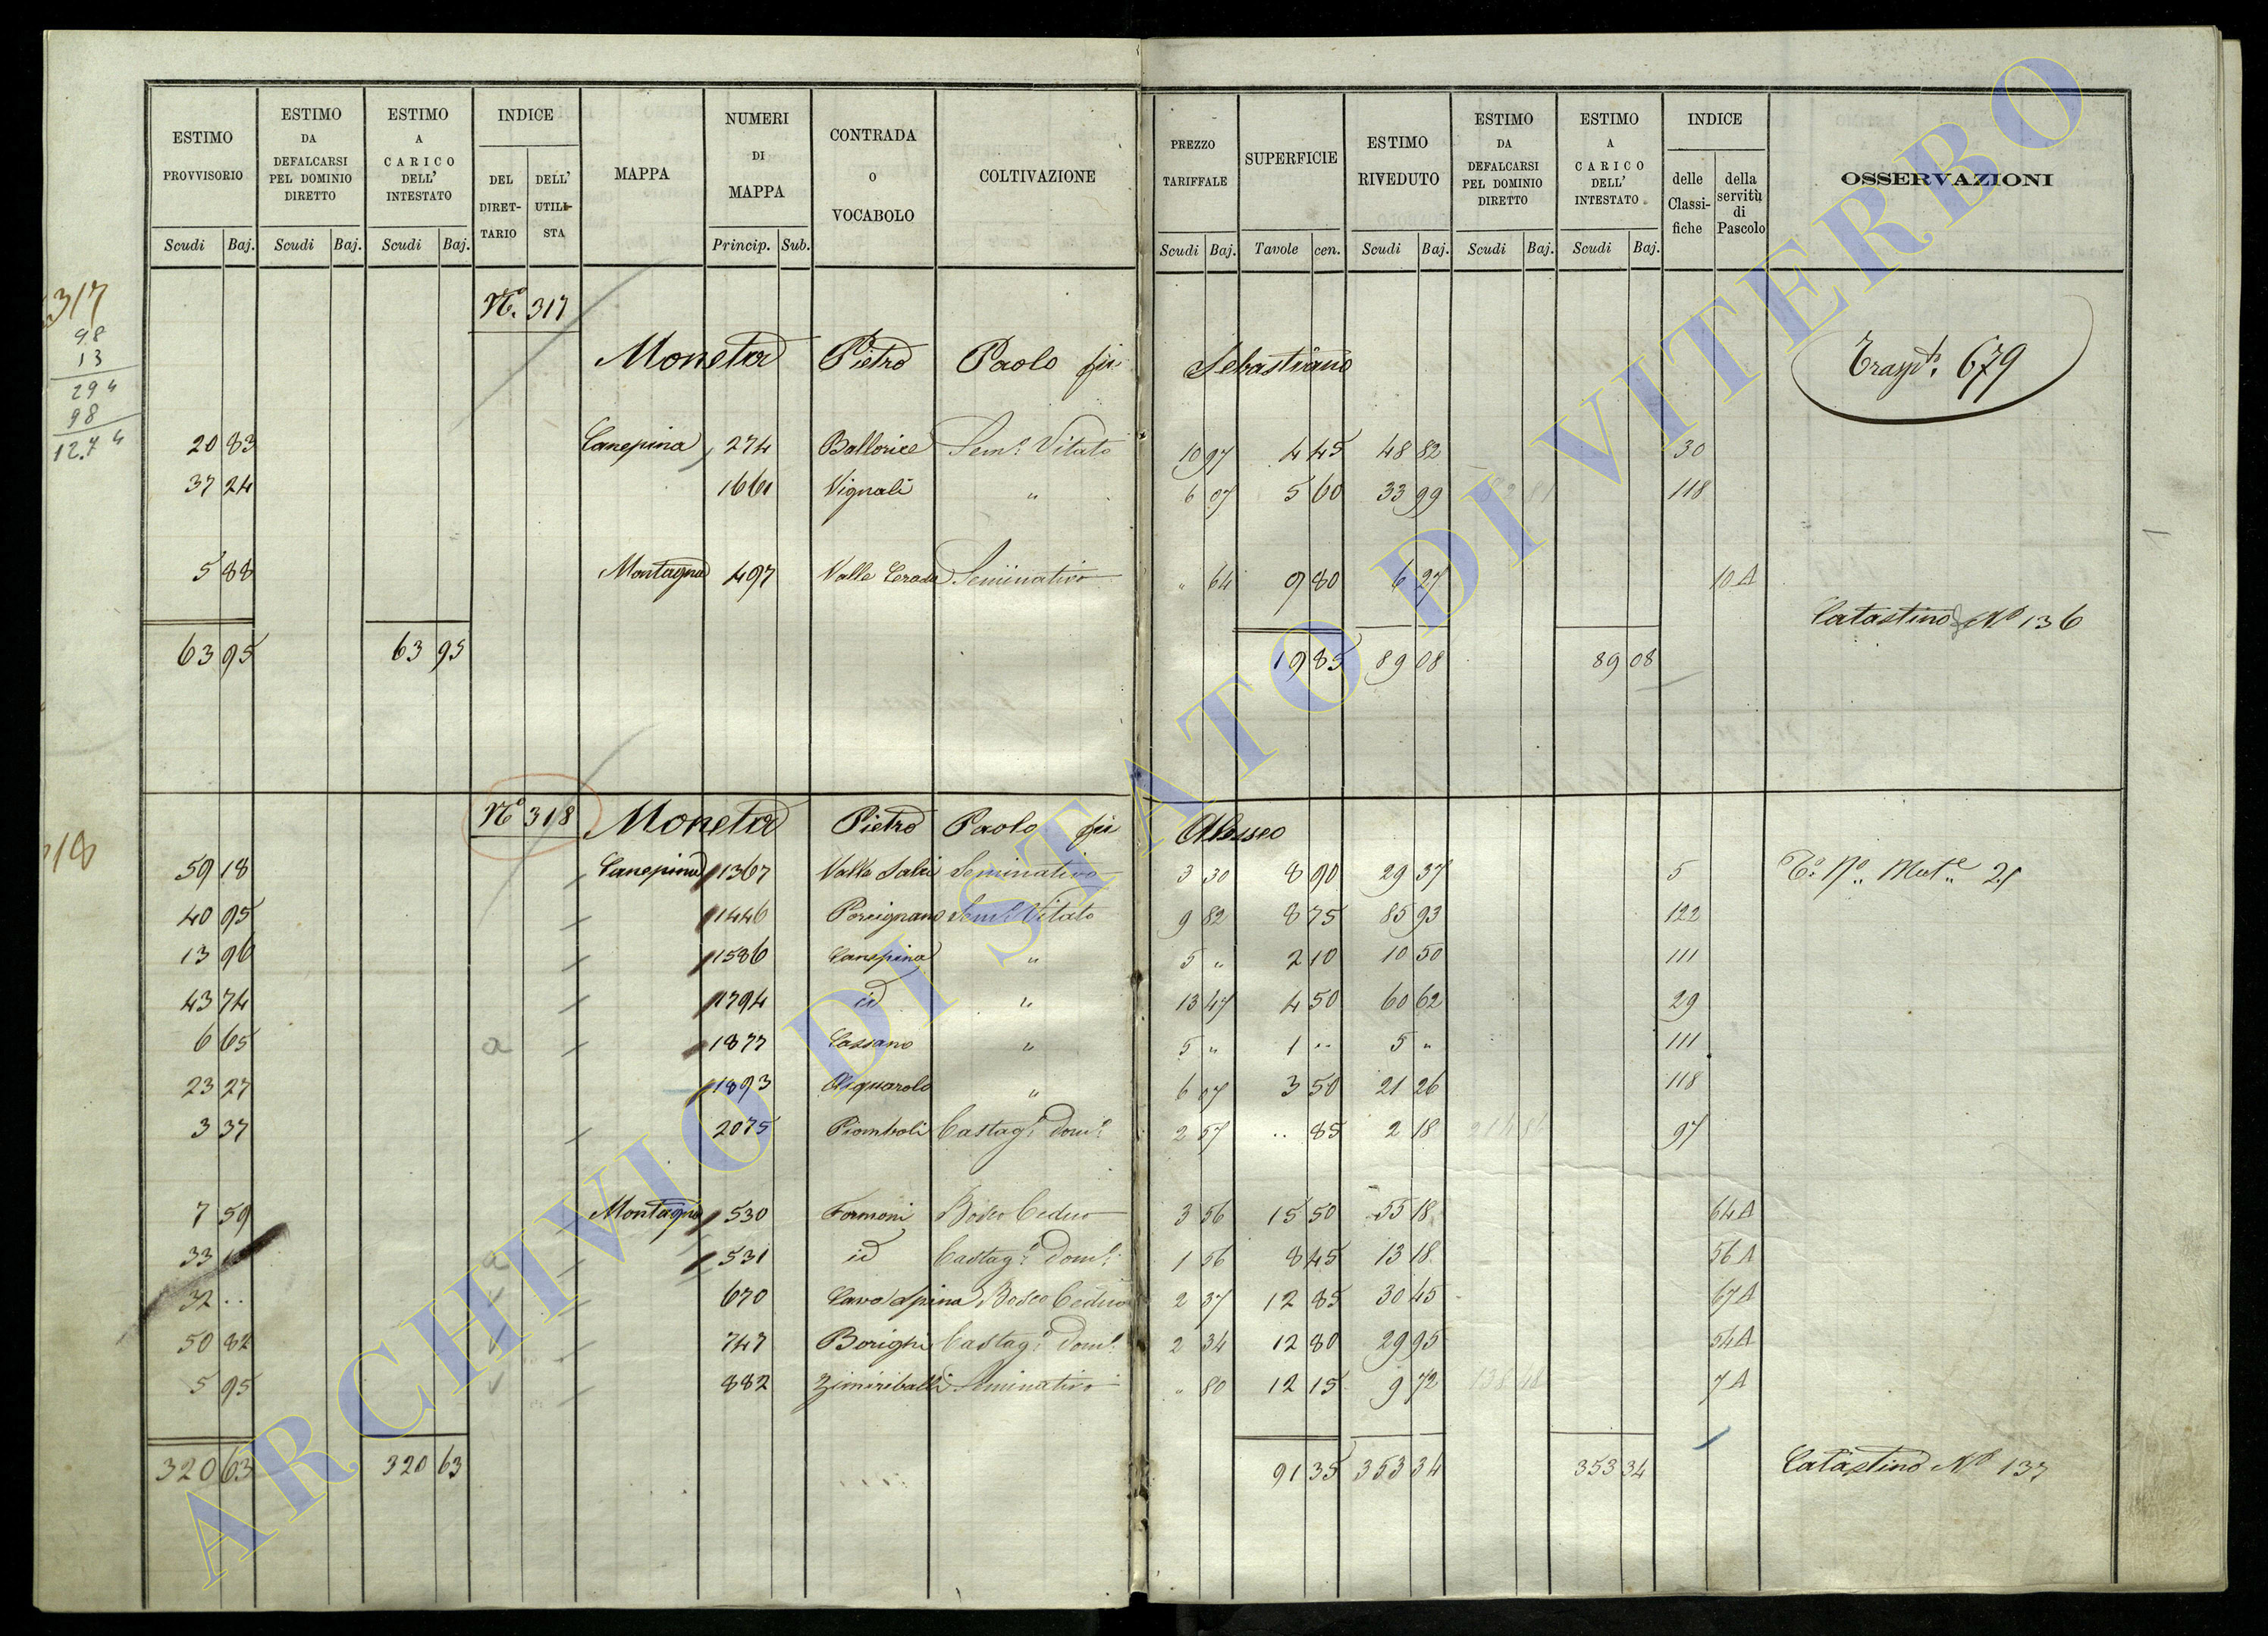 ESTIMO PROVVISORIO Scudi Baj. ESTIMO DA DEFALCARSI PEL DOMINIO DIRETTO Scudi Baj. ESTIMO A CARICO DELL' INTESTATO Scudi Baj. INDICE DEL DIRET-TARIO DELL' UTILI-STA MAPPA NUMERI DI MAPPA Princip. Sub. CONTRADA O VOCABOLO COLTIVAZIONE PREZZO TARIFFALE Scudi Baj. SUPERFICIE Tavole cen. ESTIMO RIVEDUTO Scudi Baj. ESTIMO DA DEFALCARSI PEL DOMINIO DIRETTO Scudi Baj. ESTIMO A CARICO DELL' INTESTATO Scudi Baj. INDICE delle Classi-fiche della servitù di Pascolo OSSERVAZIONI
317
98
13
294
98
1274
Nº. 317
Moneta Pietro Paolo fu Sebastiano 679
20 83 Canepina 274 Sem.º Vitato 10 97 4 45 48 82 30
37 24 1661 Vignali " 6 07 5 60 33 99 118
5 88 Montagna 497 Valle Cerasa Seminativo " 64 9 80 6 27 10 A
Catastino Nº 136
63 95 63 95 19 85 89 08 89 08
Nº 318 Moneta Pietro Paolo fu
318
59 18 Canepina 1367 Valle Salci Seminativo 3 30 8 90 29 37 5
40 95 1446 Sem.º Vitato 9 82 8 75 85 93 122
13 96 1586 Canepina " 5 " 2 10 10 50 111
43 74 1794 id " 13 47 4 50 60 62 29
6 65 a 1877 Cassano " 5 " 1 .. 5 " 111
23 27 1893 " 6 07 3 50 21 26 118
3 37 2075 Piomboli Castag.º dom.º 2 57 .. 85 2 18 97
7 59 Montagna 530 Formoni Bosco Ceduo 3 56 15 50 55 18 64 A
33 a 531 id Castag.º dom.º 1 56 8 45 13 18 56 A
32 .. 670 Cava Spina Bosco Ceduo 2 37 12 85 30 45 67 A
50 82 747 Castag.º dom.º 2 34 12 80 29 95 54 A
5 95 882 Seminativo " 80 12 15 9 72 7 A
320 63 320 63 91 35 353 34 353 34 Catastino Nº 137
ARCHIVIO DI STATO DI VITERBO